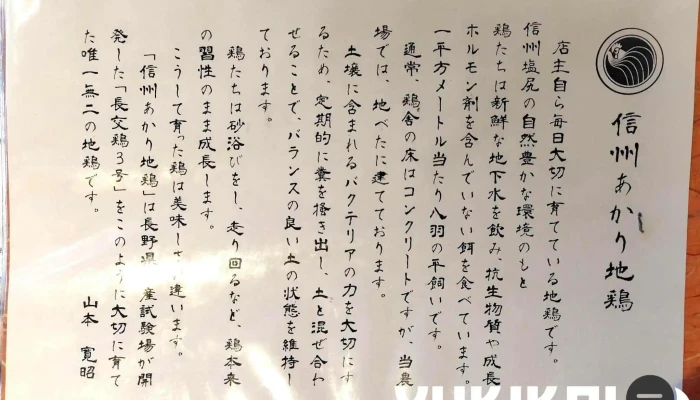 信州あかり地鶏
店主自ら毎日大切に育てている地鶏です。
信州塩尻の自然豊かな環境のもと
鶏たちは新鮮な地下水を飲み、抗生物質や成長
ホルモン剤を含んでいない餌を食べています。
一平方メートル当たり八羽の平飼いです。
通常、鶏舎の床はコンクリートですが、当農
場では、地べたに建てております。
土壌に含まれるバクテリアの力を大切にす
るため、定期的に糞を掻き出し、土と混ぜ合わ
せることで、バランスの良い土の状態を維持し
ております。
鶏たちは砂浴びをし、走り回るなど、鶏本来
の習性のまま成長します。
こうして育った鶏は美味しさ 違います。
「信州あかり地鶏」は長野県 産試験場が開
発した「長交鶏3号」をこのように大切に育て
た唯一無二の地鶏です。
山本 寛昭